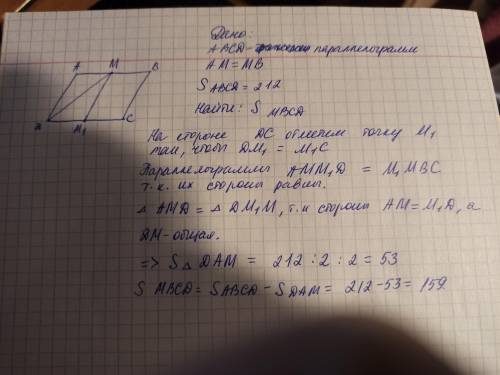 Дано:
ABCD - параллелограмм
AM = MB
S ABCD = 212
Найти: S MBCD
A M B
M₁ C
На стороне DC отметим точку M₁
так, чтобы DM₁ = M₁C
Параллелограммы AMM₁D = M₁MBC
т.к. их стороны равны.
△ AMD = △ DM₁M, т.к стороны AM = M₁D, а
DM - общая.
=> S △ DAM = 212 : 2 : 2 = 53
S MBCD = S ABCD - S DAM = 212 - 53 = 159